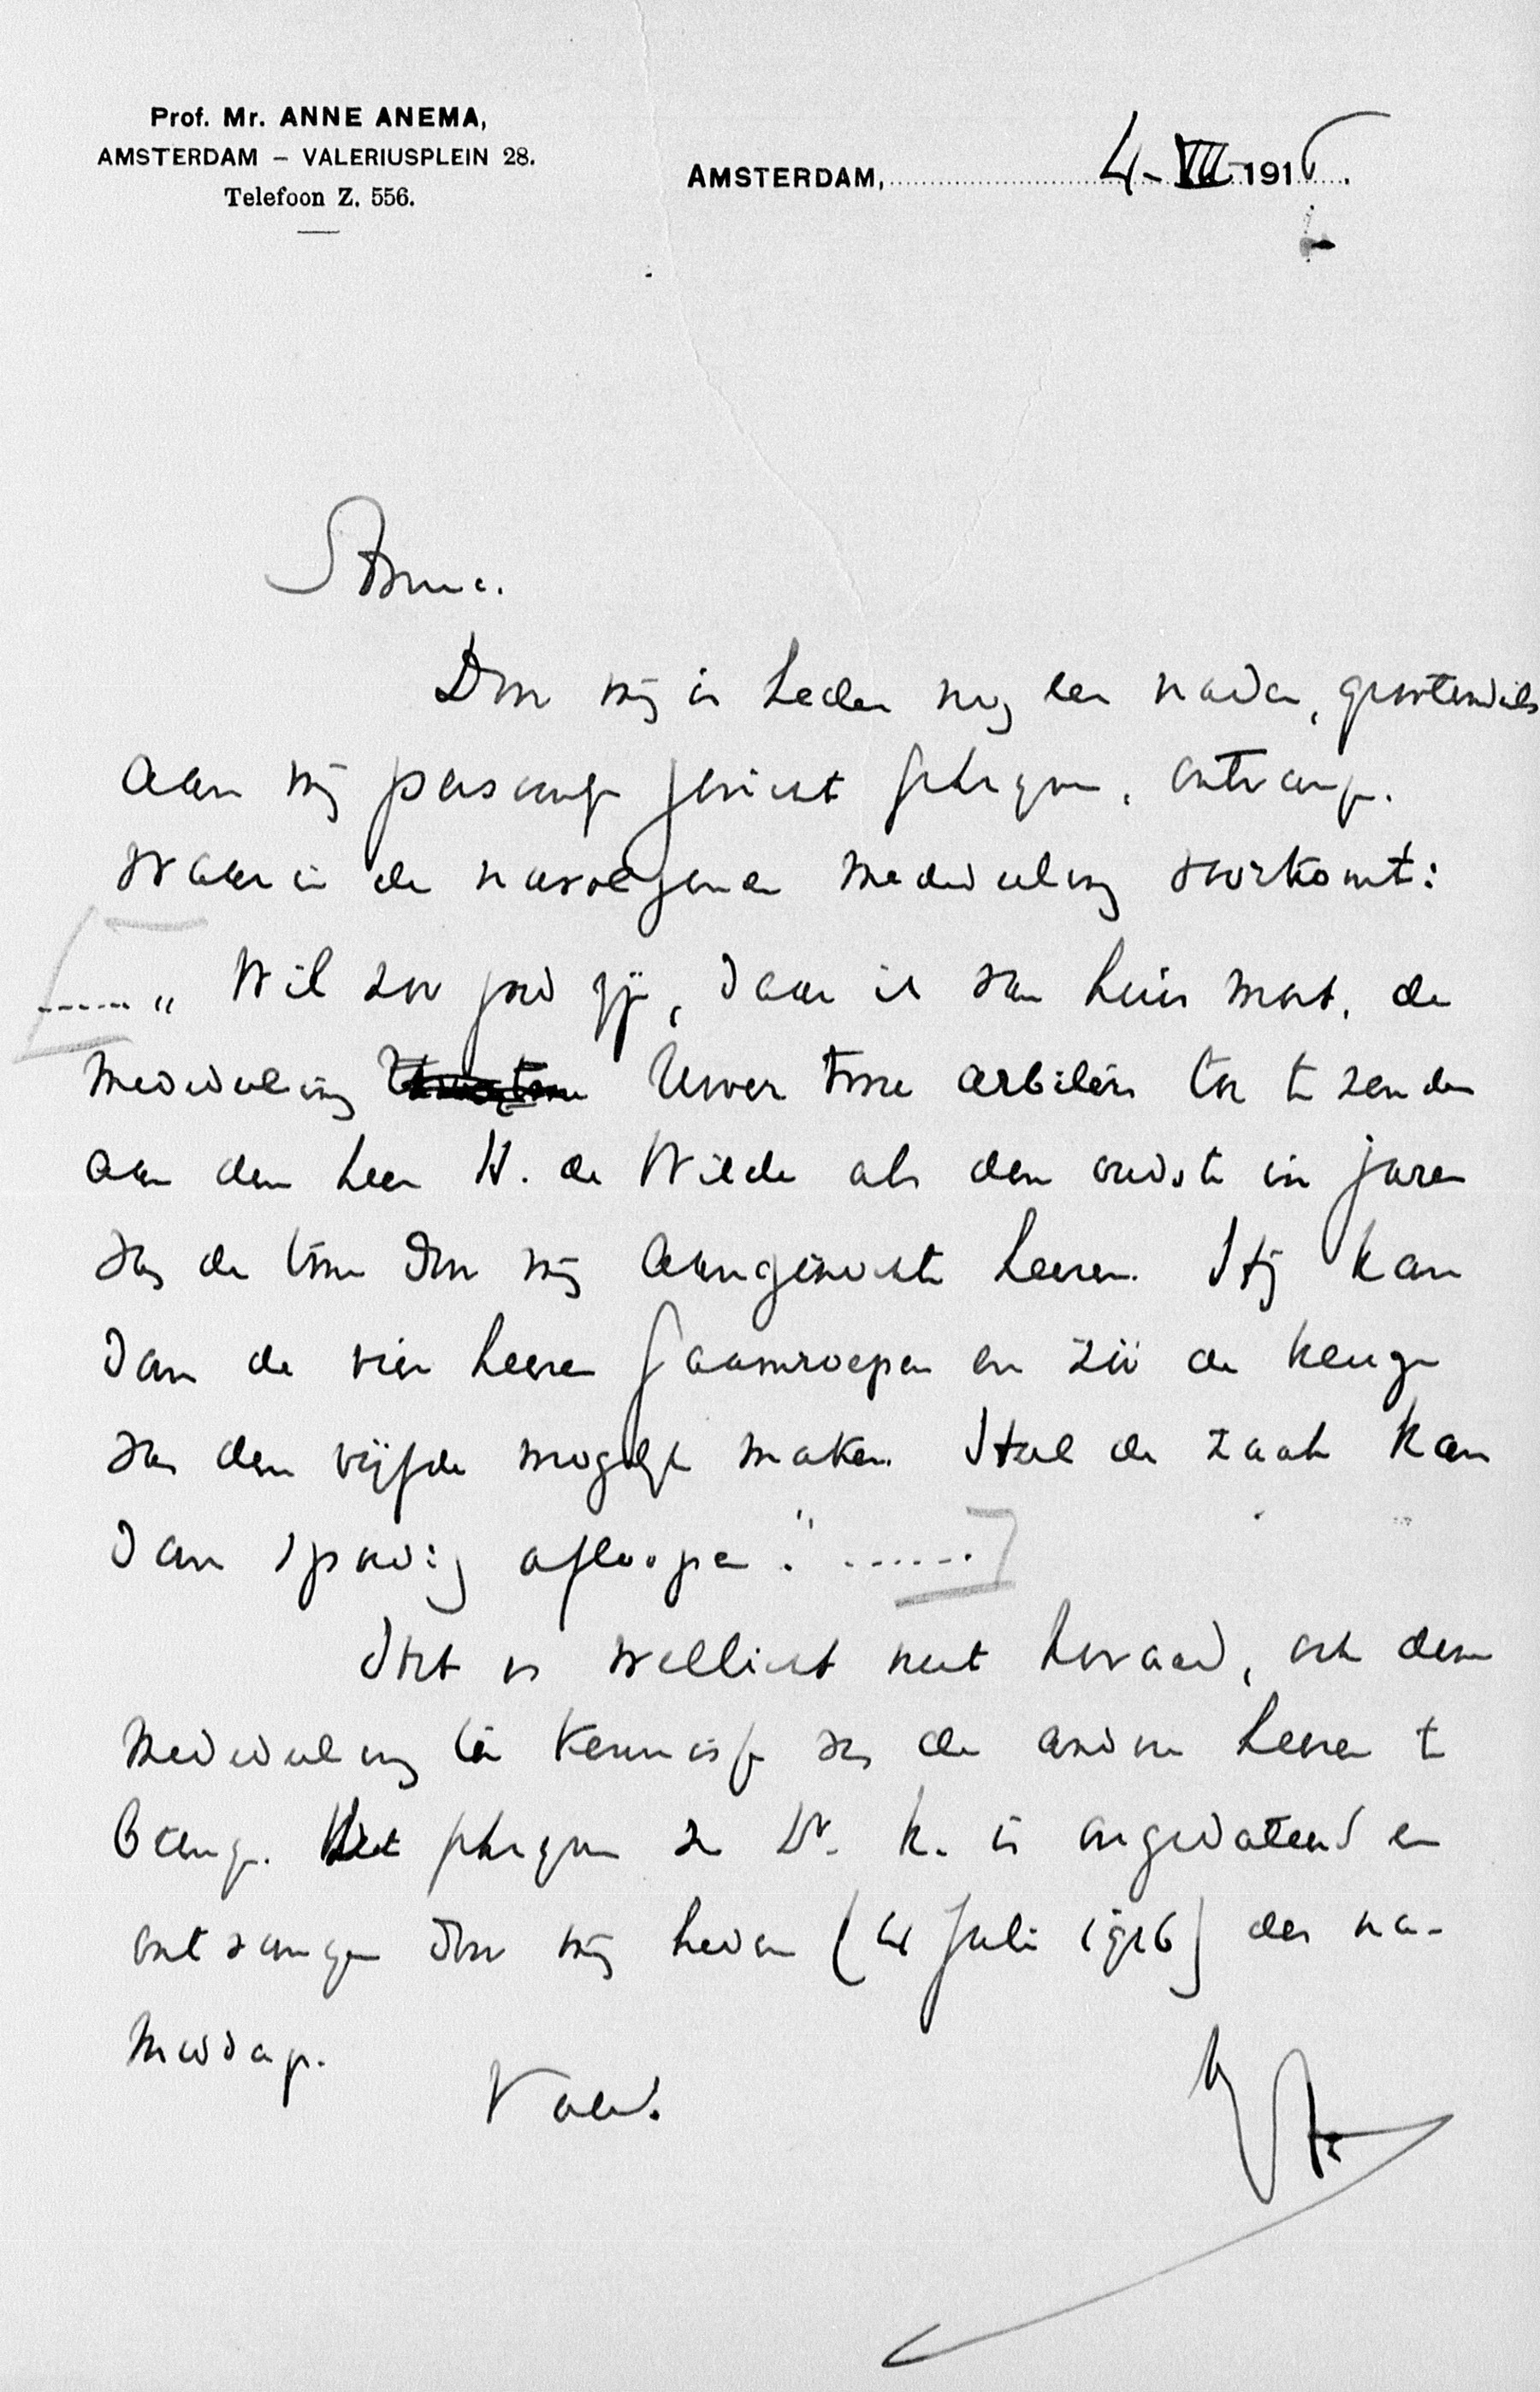 Prof. Mr. ANNE ANEMA,
AMSTERDAM – VALERIUSPLEIN 28.
Telefoon Z. 556.
AMSTERDAM, 4-VII-1916.
Amice.
Door mij is heden nog een nader, grootendeels
aan mij persoonlijk gericht schrijven, ontvangen.
waarin de navolgende mededeeling voorkomt:
...... „ Wil zoo goed zijn, daar ik van huis moet, de
mededeeling Uwer twee arbiters toe te zenden
aan den heer H. de Wilde als den oudste in jaren
van de twee door mij aangezochte heeren. Hij kan
dan de vier heeren saamroepen en zoo de keuze
van den vijfde mogelijk maken. Heel de zaak kan
dan spoedig afloopen." ......
Het is wellicht niet kwaad, ook deze
mededeeling ter kennisse van de andere heeren te
brengen. Het schrijven van Dr. K. is ongedateerd en
ontvangen door mij heden (4 Juli 1916) des na-
middags.